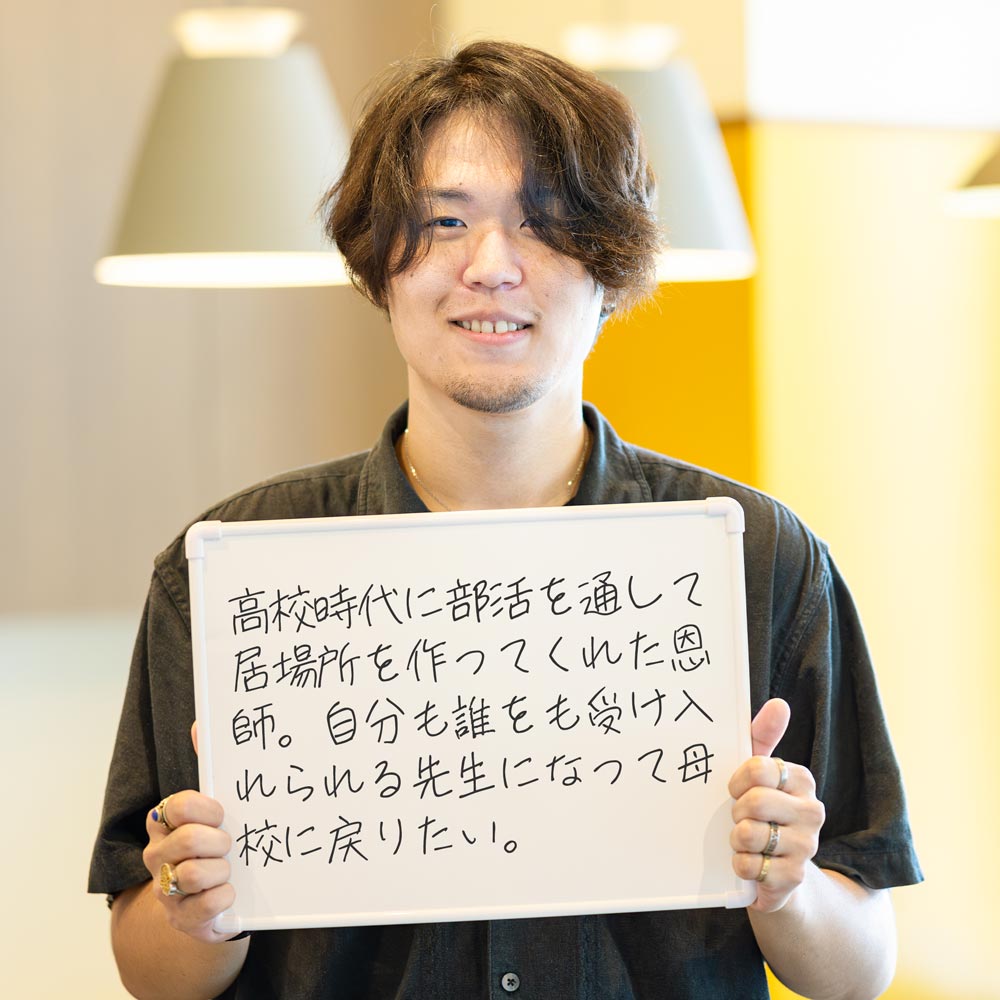 高校時代に部活を通して
居場所を作ってくれた恩
師。自分も誰をも受け入
れられる先生になって母
校に戻りたい。